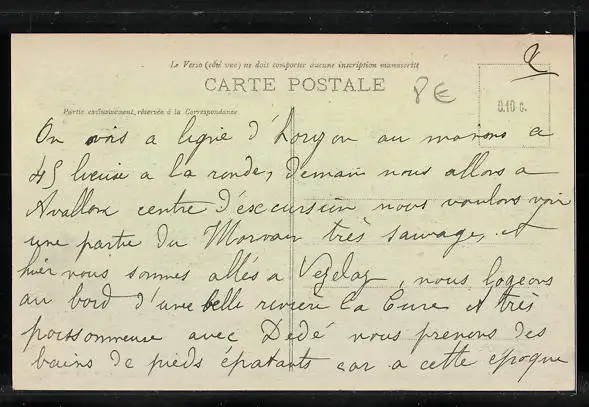 Le Verso (côté vue) ne doit comporter aucune inscription manuscrite
CARTE POSTALE
8€
0.10 c.
Partie exclusivement réservée à la Correspondance
On vois a ligne d'horyzon au moins a
45 lieuise a la ronde, demain nous allons a
Avallon centre d'éxcursion nous voulons voir
une partie du Morvan très sauvage, et
hier nous sommes allés a Vezelay, nous logeons
au bord d'une belle rivière la Cure et très
poissonneuse avec Dédé nous prenons des
bains de pieds épatants car a cette époque